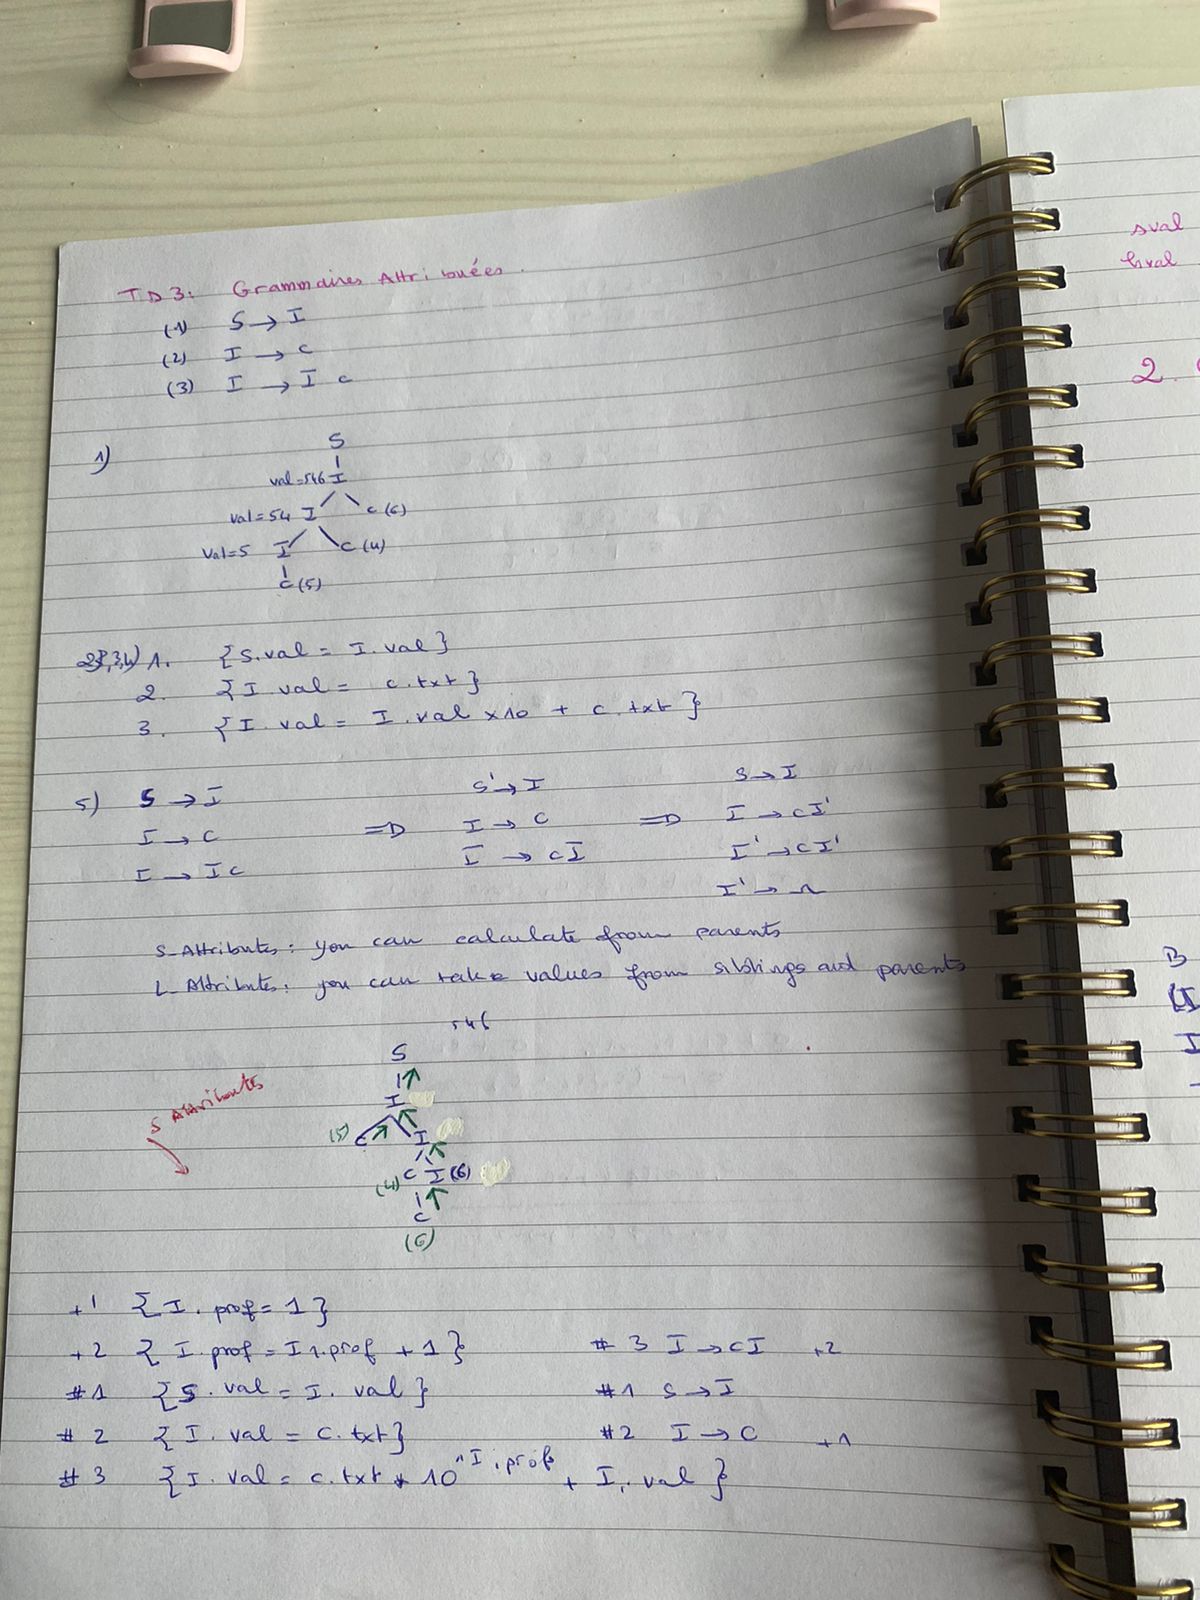 TD3: Grammaires Attribuées.
(1) S → I
(2) I → c
(3) I → I c
1)
S
val=546 I
val=54 I c(6)
val=5 I c(4)
c(5)
1. {S.val = I.val}
2. {I.val = c.txt}
3. {I.val = I.val ×10 + c.txt}
5) S → I
I → c
I → I c
⇒
S' → I
I → c
I → cI
⇒
S → I
I → cI'
I' → cI'
I' → Λ
S-Attributes: you can calculate from parents
L-Attributes: you can take values from siblings and parents
546
S
S Attributes
I
(5) c I
(4) c I (6)
c
(6)
+1 {I.prof = 1}
+2 {I.prof = I1.prof + 1} #3 I → cI +2
#1 {S.val = I.val} #1 S → I
#2 {I.val = c.txt} #2 I → c +1
#3 {I.val = c.txt * 10^I.prof + I.val}
sval
hval
2.
B
I